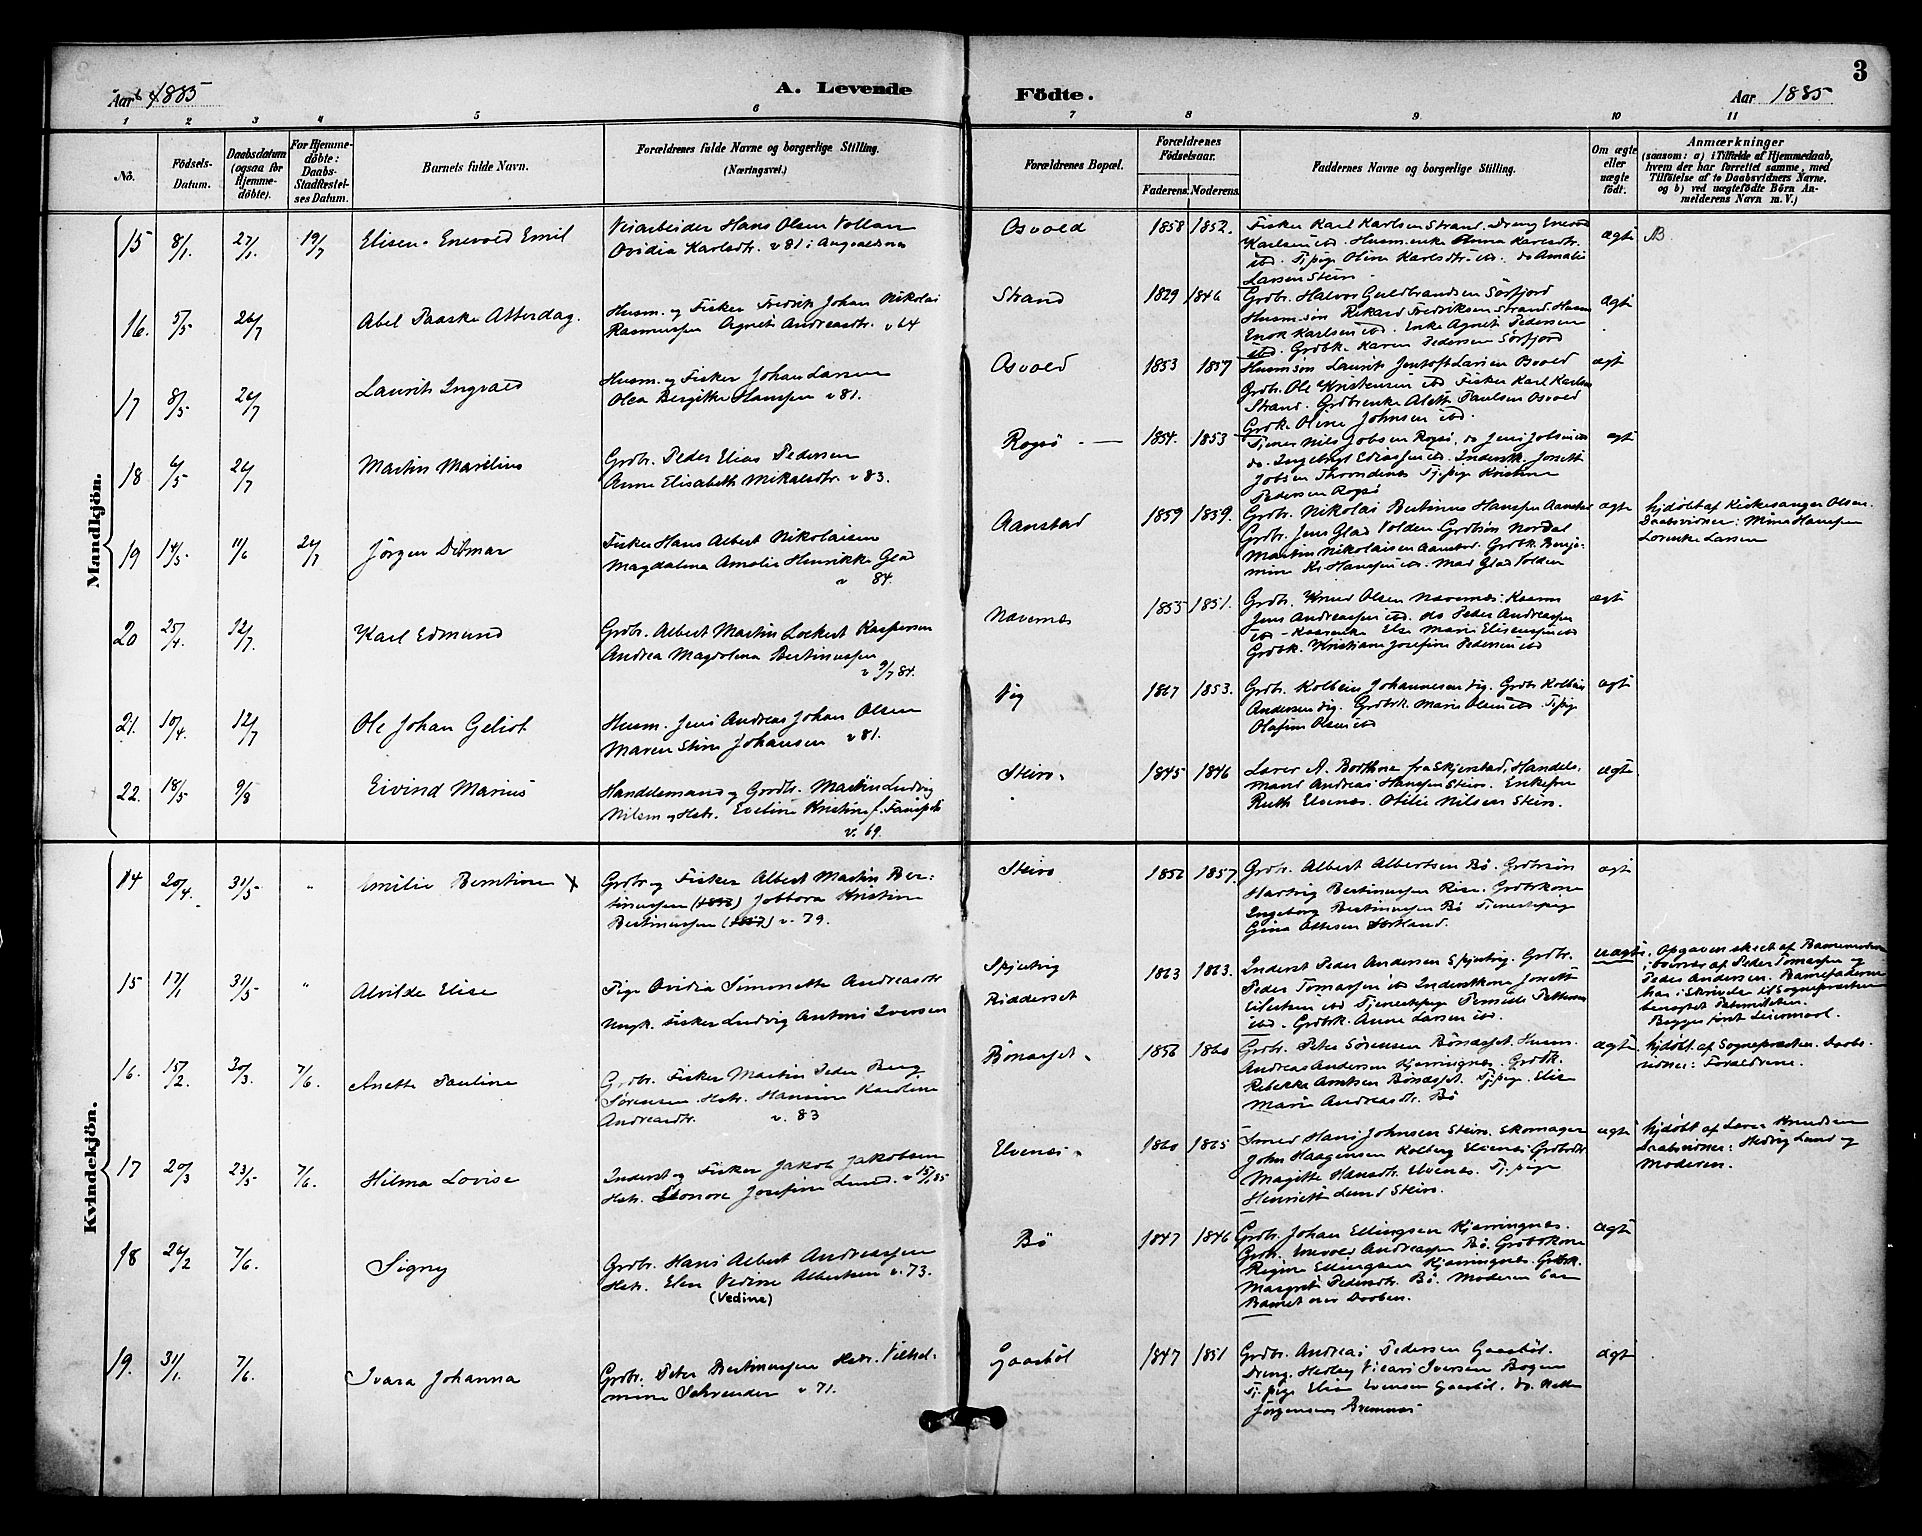 Aar 1885
A. Levende
Födte.
Aar 1885
3
1 2 3 4 5 6 7 8 9 10 11
No.
Födsels-Datum.
Daabsdatum (ogsaa for Hjemmedöbte).
For Hjemmedöbte: Daabs-Stadfæstelses Datum.
Barnets fulde Navn.
Forældrenes fulde Navne og borgerlige Stilling. (Næringsvei.)
Forældrenes Bopæl.
Forældrenes Födselsaar.
Faderens. Moderens.
Faddernes Navne og borgerlige Stilling.
Om ægte eller uægte födt.
Anmærkninger
(saasom: a) i Tilfælde af Hjemmedaab, hvem der har forrettet samme, med Tilföielse af to Daabsvidners Navne, og b) ved uægtefödte Börn Anmelderens Navn m. V.)
Mandkjön.
15 8/1 27/1 19/7 Elisen Enevold Emil
Veiarbeider Hans Olsen Vollan
Ovidia Karlsdtr. v 81 i
Osvold 1858 1852.
Fisker Karl Karlsen Strand. Dreng Enevold
Karlsen ibd. Husm.enke Anna Karlsdtr.
ibd. Tj.pige Oline Karlsdtr. ibd. do Amalie
Larsen Stein.
ægte NB.
16. 5/5 26/7 Abel Paaske Atterdag.
Husm. og Fisker Fredrik Johan Nikolai
Rasmussen Agnet Andreasdtr. v 64
Strand 1829 1846
Grdbr. Halvor Guldbrandsen Sörfjord
Husm.sön Rikard Fredriksen Strand. Husm
Enok Karlsen ibd. Enke Agnet Pedersen
ibd. Grdbk. Karen Pedersen Sörfjord
ægte
17 8/5 26/7 Laurits Ingvald
Husm. og Fisker Johan Larsen
Olea Bergitte Hansen v 81.
Osvold 1853 1857
Husmsön Laurits Jentoft Larsen Osvold
Grdbr. Ole Kristensen ibd Fisker Karl Karlsen
Strand. Grdbrenke Alett Paulsen Osvold
Grdk. Oline Johnsen ibd.
ægte
18 6/5 26/7 Martin Marelius
Grdbr. Peder Elias Pedersen
Anne Elisabeth Mikalsdtr. v 83.
Rogsö 1854. 1853
Tjener Nils Jobsen Rogsö, do Jens Jobsen ibd
do. Ingebrigt Eliassen ibd. Inderstk. Josett
Jobsen Tj.pige Kristine
Pedersen Rogsö
ægte
19 14/5 11/6 26/7 Jörgen Ditmar
Fisker Hans Albert Nikolaisen
Magdalena Amalie Henrikke Glad
v 84.
Aanstad 1859 1859.
Grdbr. Nikolai Bertinus Hansen Aanstad
Grdbr. Jens Glad Volden Grdbsön Nordal
Martin Nikolaisen Aanstad. Grdbk. Benja-
mine Kr. Hansen ibd. Mad Glad Volden
ægte
hjdöbt af Kirkesanger Olsen.
Daabsvidner: Mina Hansen
Lorentse Larsen
20 25/4. 12/7. Karl Edmund
Grdbr. Albert Martin Lockert Kaspersen
Andrea Magdalena Bertinussen
v 9/7 84.
Nævernes 1855 1851.
Grdbr. Knud Olsen Nævernes: Kaarm.
Jens Andreassen ibd. do Peder Andreassen
ibd - Kaarenke Else Marie Elisenssen ibd
Grdbk. Kristiane Josefine Pedersen ibd
ægte
21. 10/4. 12/7 Ole Johan Geliot
Husm. Jens Andreas Johan Olsen
Maren Stine Johansen v 81.
Vig 1867 1853.
Grdbr. Kolbein Johannesen Vig. Grdbr Kolbein
Andersen Vig. Grdbrk. Marie Olsen ibd. Tj.pige
Olafine Olsen ibd
ægte
22. 18/5 9/8 Eivind Marius
Handelsmand og Grdbr. Martin Ludvig
Nilsen og Hstr. Eveline Kristine f.
v. 69.
Stein. 1845 1846
Lærer A. Borthne fra Skjerstad, Handels-
mand Andreas Hansen Stein. Enkefru
Ruth Elvenæs. Otilie Nilsen Stein.
ægte
Kvindekjön.
14 20/4. 31/5 " Emilie Berntine X
Grdbr og Fisker Albert Martin Ber-
tinussen (1856) Jobbora Kristine
Bertinussen (1857) v. 79.
Stein 1856 1857.
Grdbr. Albert Albertsen Bö. Grdbrsön
Hartvig Bertinussen Rise. Grdbrkone
Ingeborg Bertinussen Bö Tjenestepige
Gina Ottesen Sortland.
ægte
15 17/1 31/5 " Alvilde Elise
Pige Ovidia Simonette Andreasdtr
Ungk. Fisker Ludvig Antoni Iversen
Spjutvig
Ridderset
1863 1863.
Inderst Peder Andersen Spjutvig. Grdbr.
Peder Tomassen ibd Inderstkone Josette
ibd Tjenestepige Pernille Pettersen
ibd. Grdbrk. Anne Larsen ibd.
uægte.
Opgaven skeet af Barnemoderen
i Overvær af Peder Tomassen og
Peder Andersen. Barnefaderen
har i Skrivelse til Sognepræsten
benægtet Paterniteten.
Begges förste Leiermaal.
16. 15/2 30/3. 7/6. Anette Pauline
Grdbr. Fisker Martin Peder Berg
Sörensen. Hstr. Hansine Karoline
Andreasdtr. v. 83
Bönæsset. 1856 1860
Grdbr. Peter Sörensen Bönæsset. Husm.
Andreas Andersen Kjerringnes. Grdbk.
Rebekka Arntsen Bönæsset. Tj.pige. Elise
Marie Andreasdtr. Bö
ægte
hjdöbt. af Sognepræsten. Daabs-
vidner: Forældrene.
17 20/3 23/5 7/6. Hilma Lovise
Inderst og Fisker Jakob Jakobsen
Hstr. Leonore Josefine Lund. v 15/1 85
Elvenæs. 1860 1865
Smed Hans Johnsen Stein. Skomager
John Haagensen Kolberg Elvenæs Grdbrdtr
Magitte Hansdtr. Elvenæs. Tj.pige
Henriette Lund Stein.
ægte
hjdöbt af Lars Knudsen
Daabsvidner: Hedvig Lund og
Moderen.
18 26/2 7/6. Signy
Grdbr. Hans Albert Andreassen
Hstr. Elen Vedine Albertsen v. 73.
(Vedine)
Bö 1847 1846
Grdbr. Johan Ellingsen Kjerringnes.
Grdbr. Enevold Andreassen Bö. Grdbrkone
Regine Ellingsen Kjerringnes. Grdbk.
Margrete Pedersdtr. Bö. Moderen bar
Barnet over Daaben.
ægte
19. 31/1. 7/6. Svara Johanna
Grdbr. Peter Bertinussen Hstr. Vilhel-
mine Schrøder v 71.
Gaasböl 1847 1851
Grdbr. Andreas Pedersen Gaasböl.
Dreng. Hedley Vicars Iversen Bogen
Tj.pige Elise Evensen Gaasböl. do. Nette
Jörgensen Bremnes
ægte